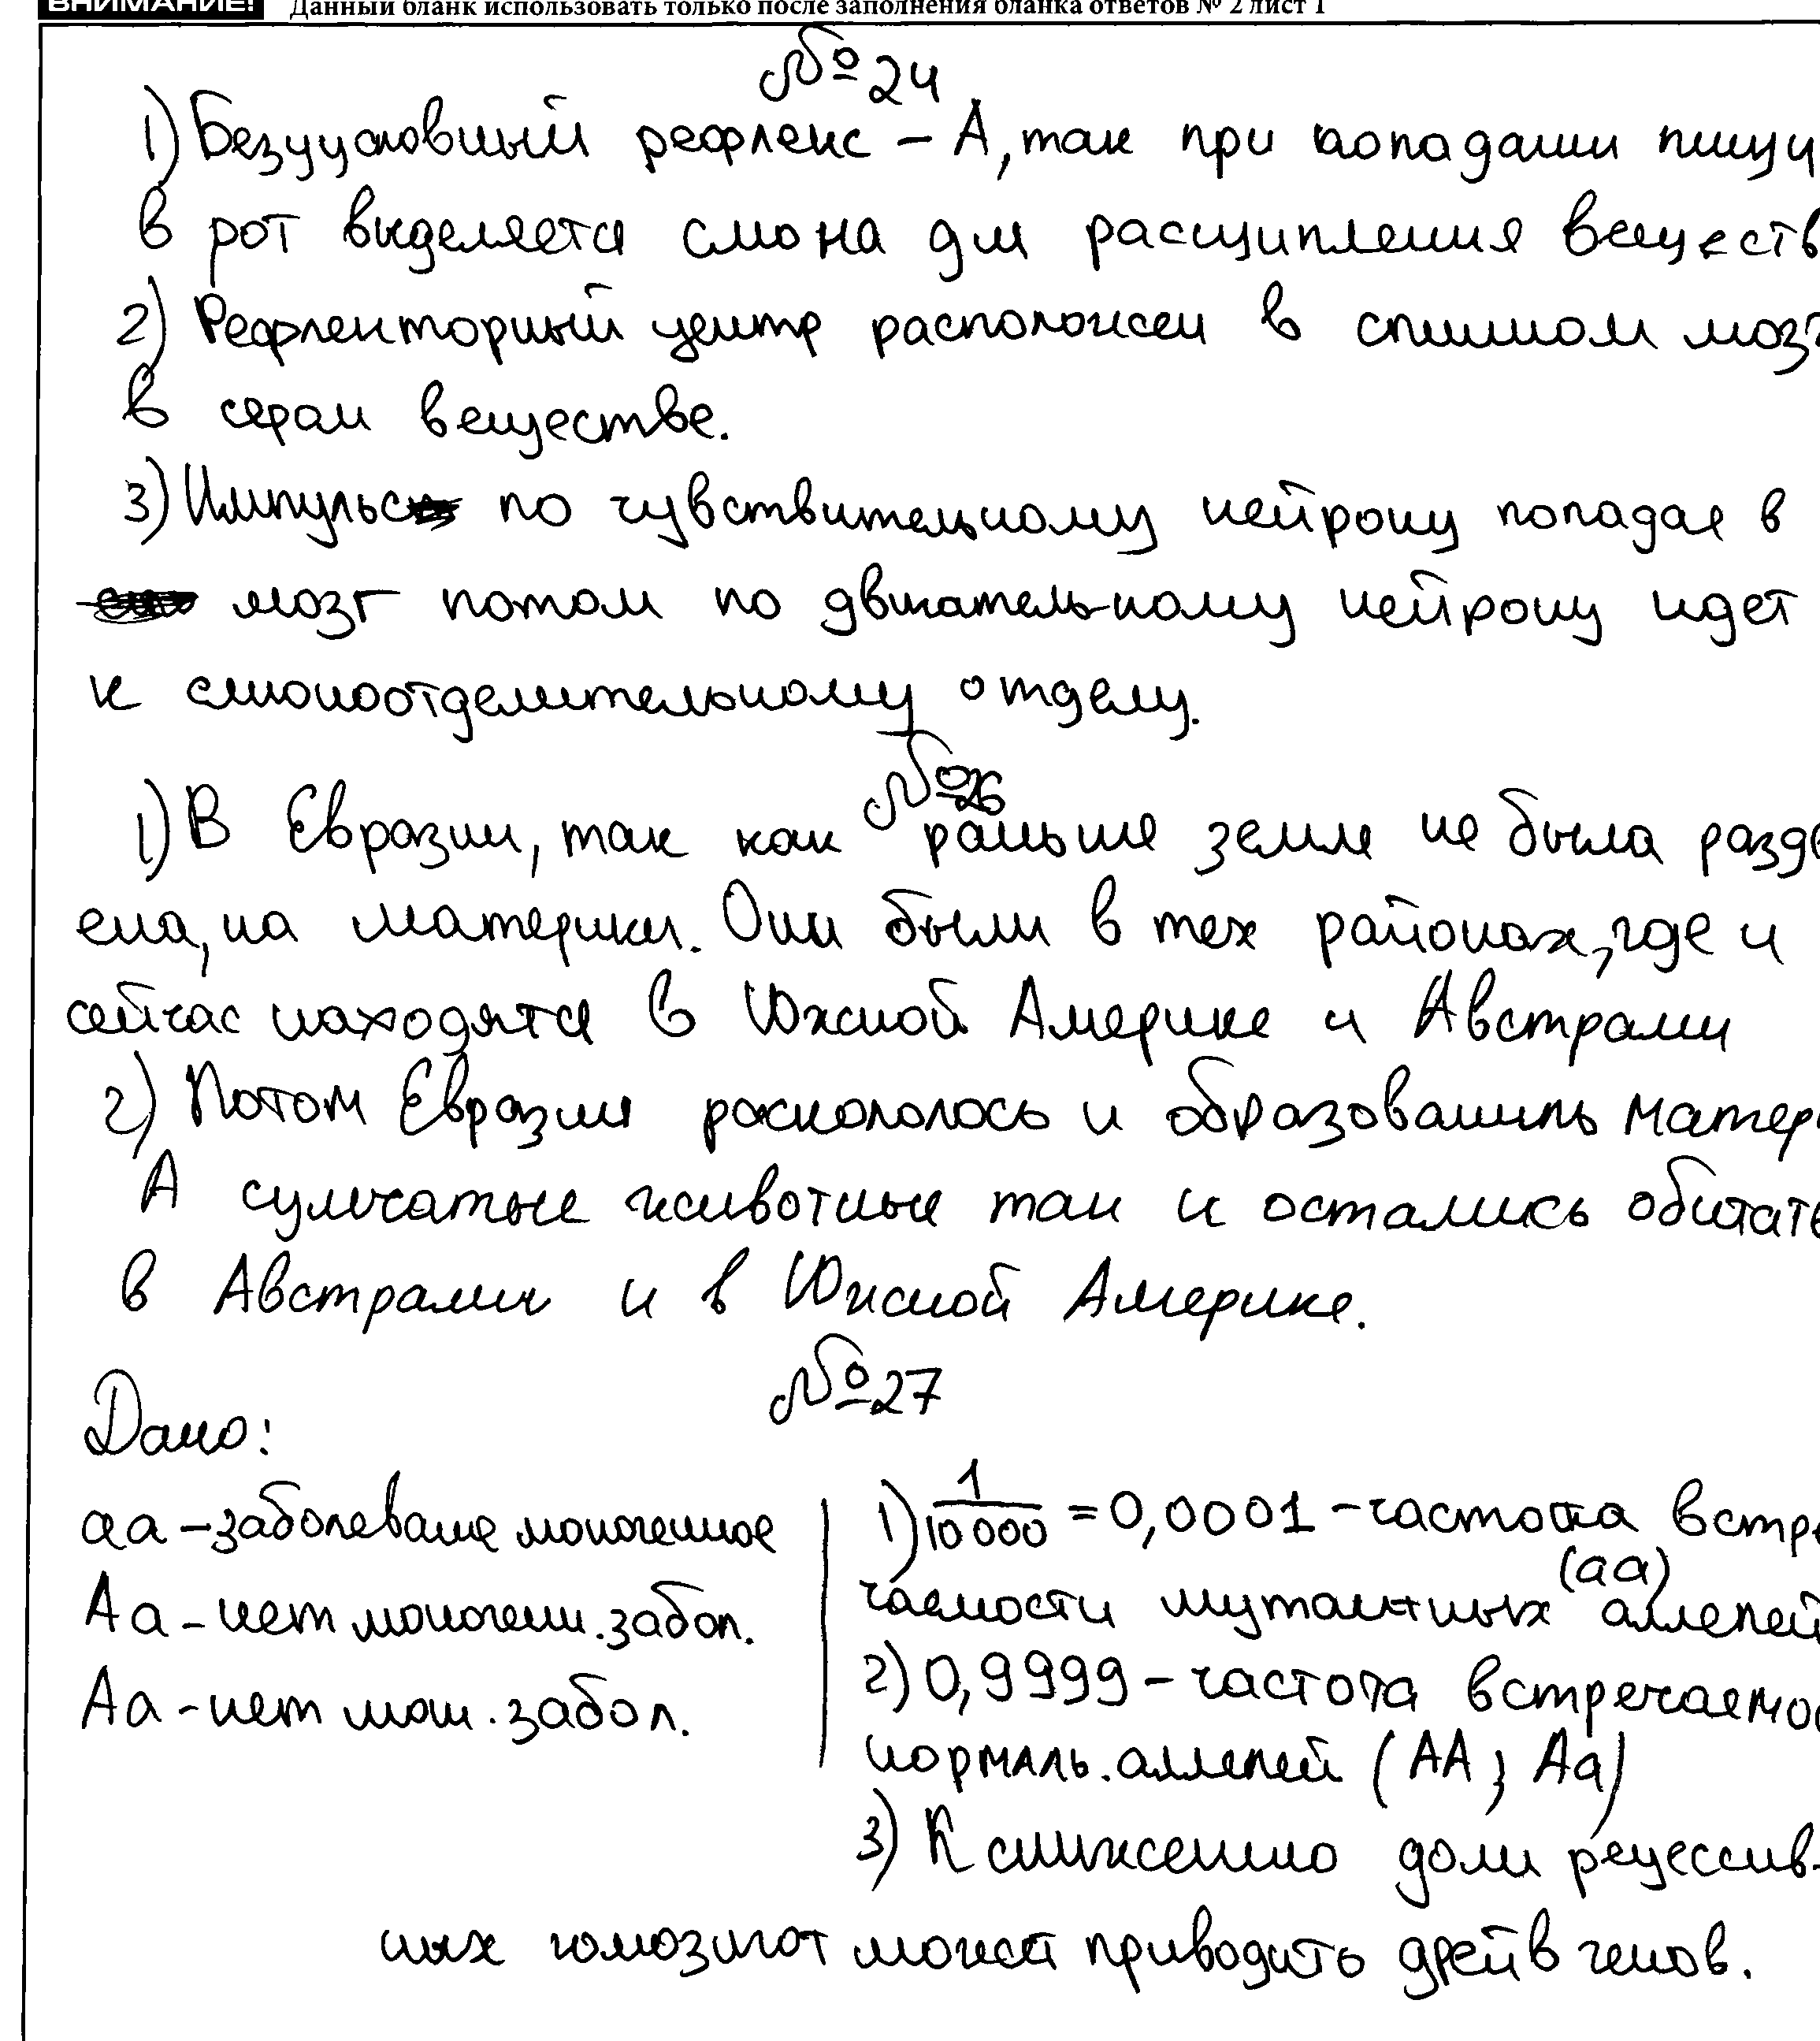 ВНИМАНИЕ! Данный бланк использовать только после заполнения бланка ответов № 2 лист 1
№ 24
1) Безусловный рефлекс – А, так при попадании пищи
в рот выделяется слюна для расщипления веществ
2) Рефлекторный центр расположен в спинном мозг
в сером веществе.
3) Импульс по чувствительному нейрону попадае в
мозг потом по двигательному нейрону идет
к слюноотделительному отделу.
№26
1) В Евразии, так как раньше земле не была разде
ена, на материки. Они были в тех районах, где и
сейчас находятся в Южной Америке и Австралии
2) Потом Евразия раскололось и образовались матер
А сумчатые животные так и остались обитать
в Австралии и в Южной Америке.
№27
Дано:
аа – заболевание моногенное
Аа – нет моногенн. забол.
Аа – нет мон. забол.
1) 1/10 000 = 0,0001 – частота встре
чаемости мутантных (аа) аллелей
2) 0,9999 – частота встречаемос
нормаль. аллелей (АА; Аа)
3) К снижению доли рецессив-
ных гомозигот может приводить дрейв генов.